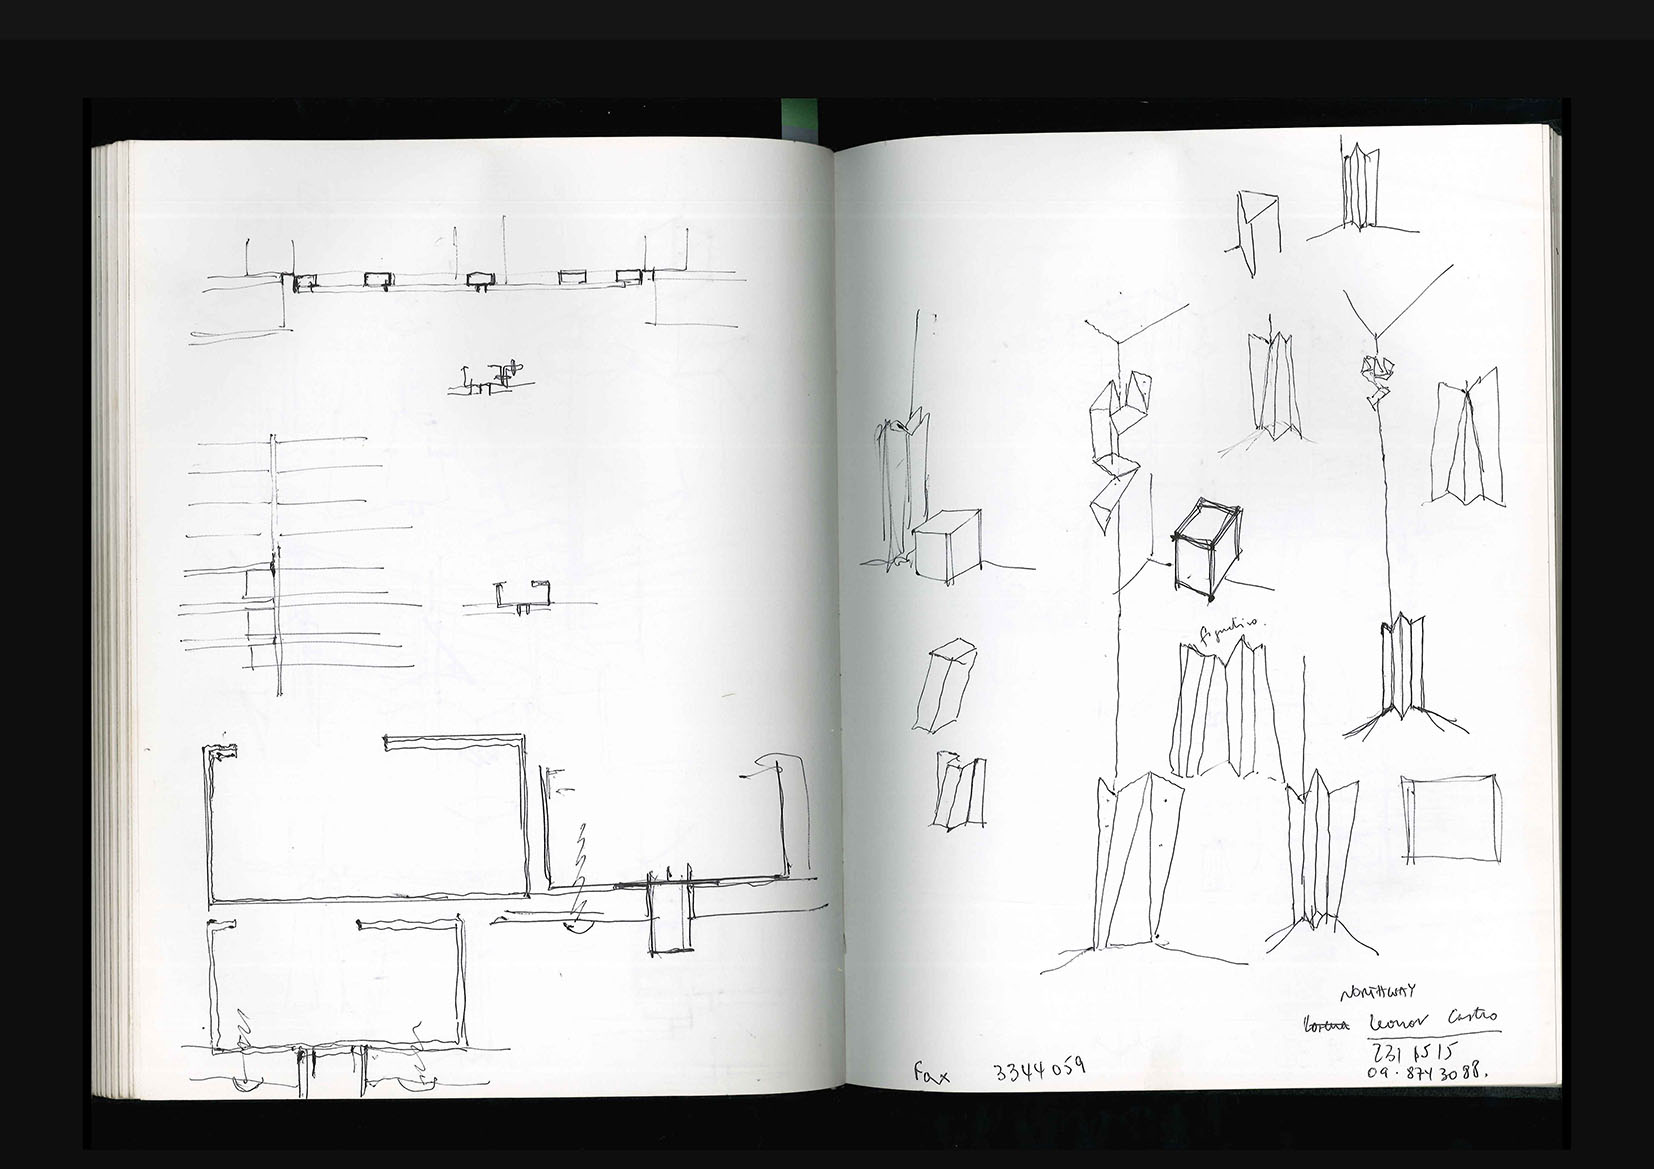 figurativo.
NORTHWAY
Lorena Leonor Castro
231 1515
09.8743088.
Fax 3344059